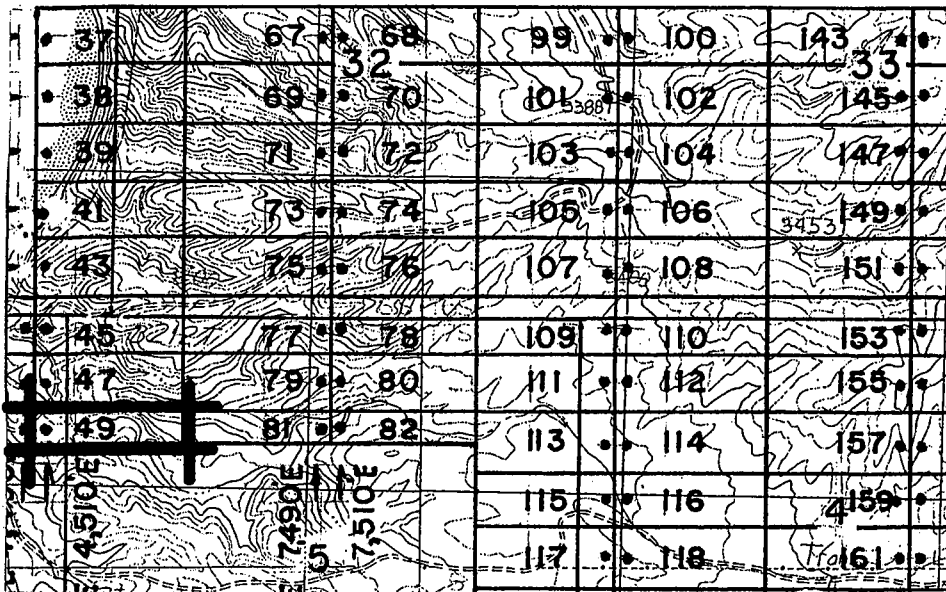 37 67 68 99 100 143
32 33
38 69 70 101 5388 102 145
39 71 72 103 104 147
41 73 74 105 106 149
3453
43 75 76 107 108 151
45 77 78 109 110 153
47 79 80 111 112 155
49 81 82 113 114 157
4,510'E 7,490E 7,510E
115 116 4 159
5 117 118 161